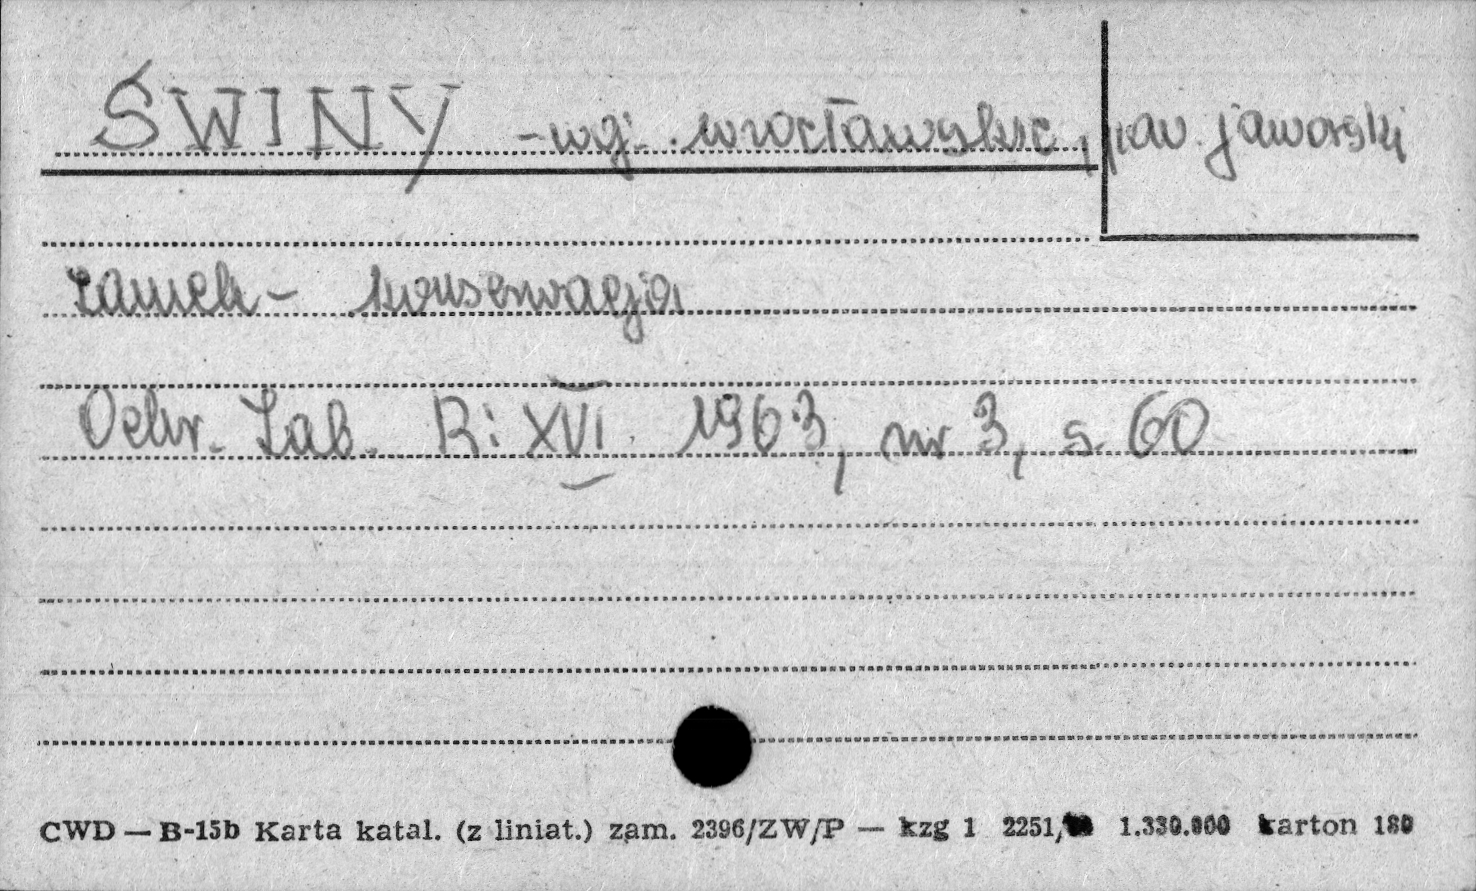 ŚWINY - woj. wrocławskie, pow. jaworski
zamek - konserwacja
Ochr. Zab. R: XVI. 1963, nr 3, s. 60
CWD — B-15b Karta katal. (z liniat.) zam. 2396/ZW/P — kzg 1 2251/ 1.330.000 karton 180